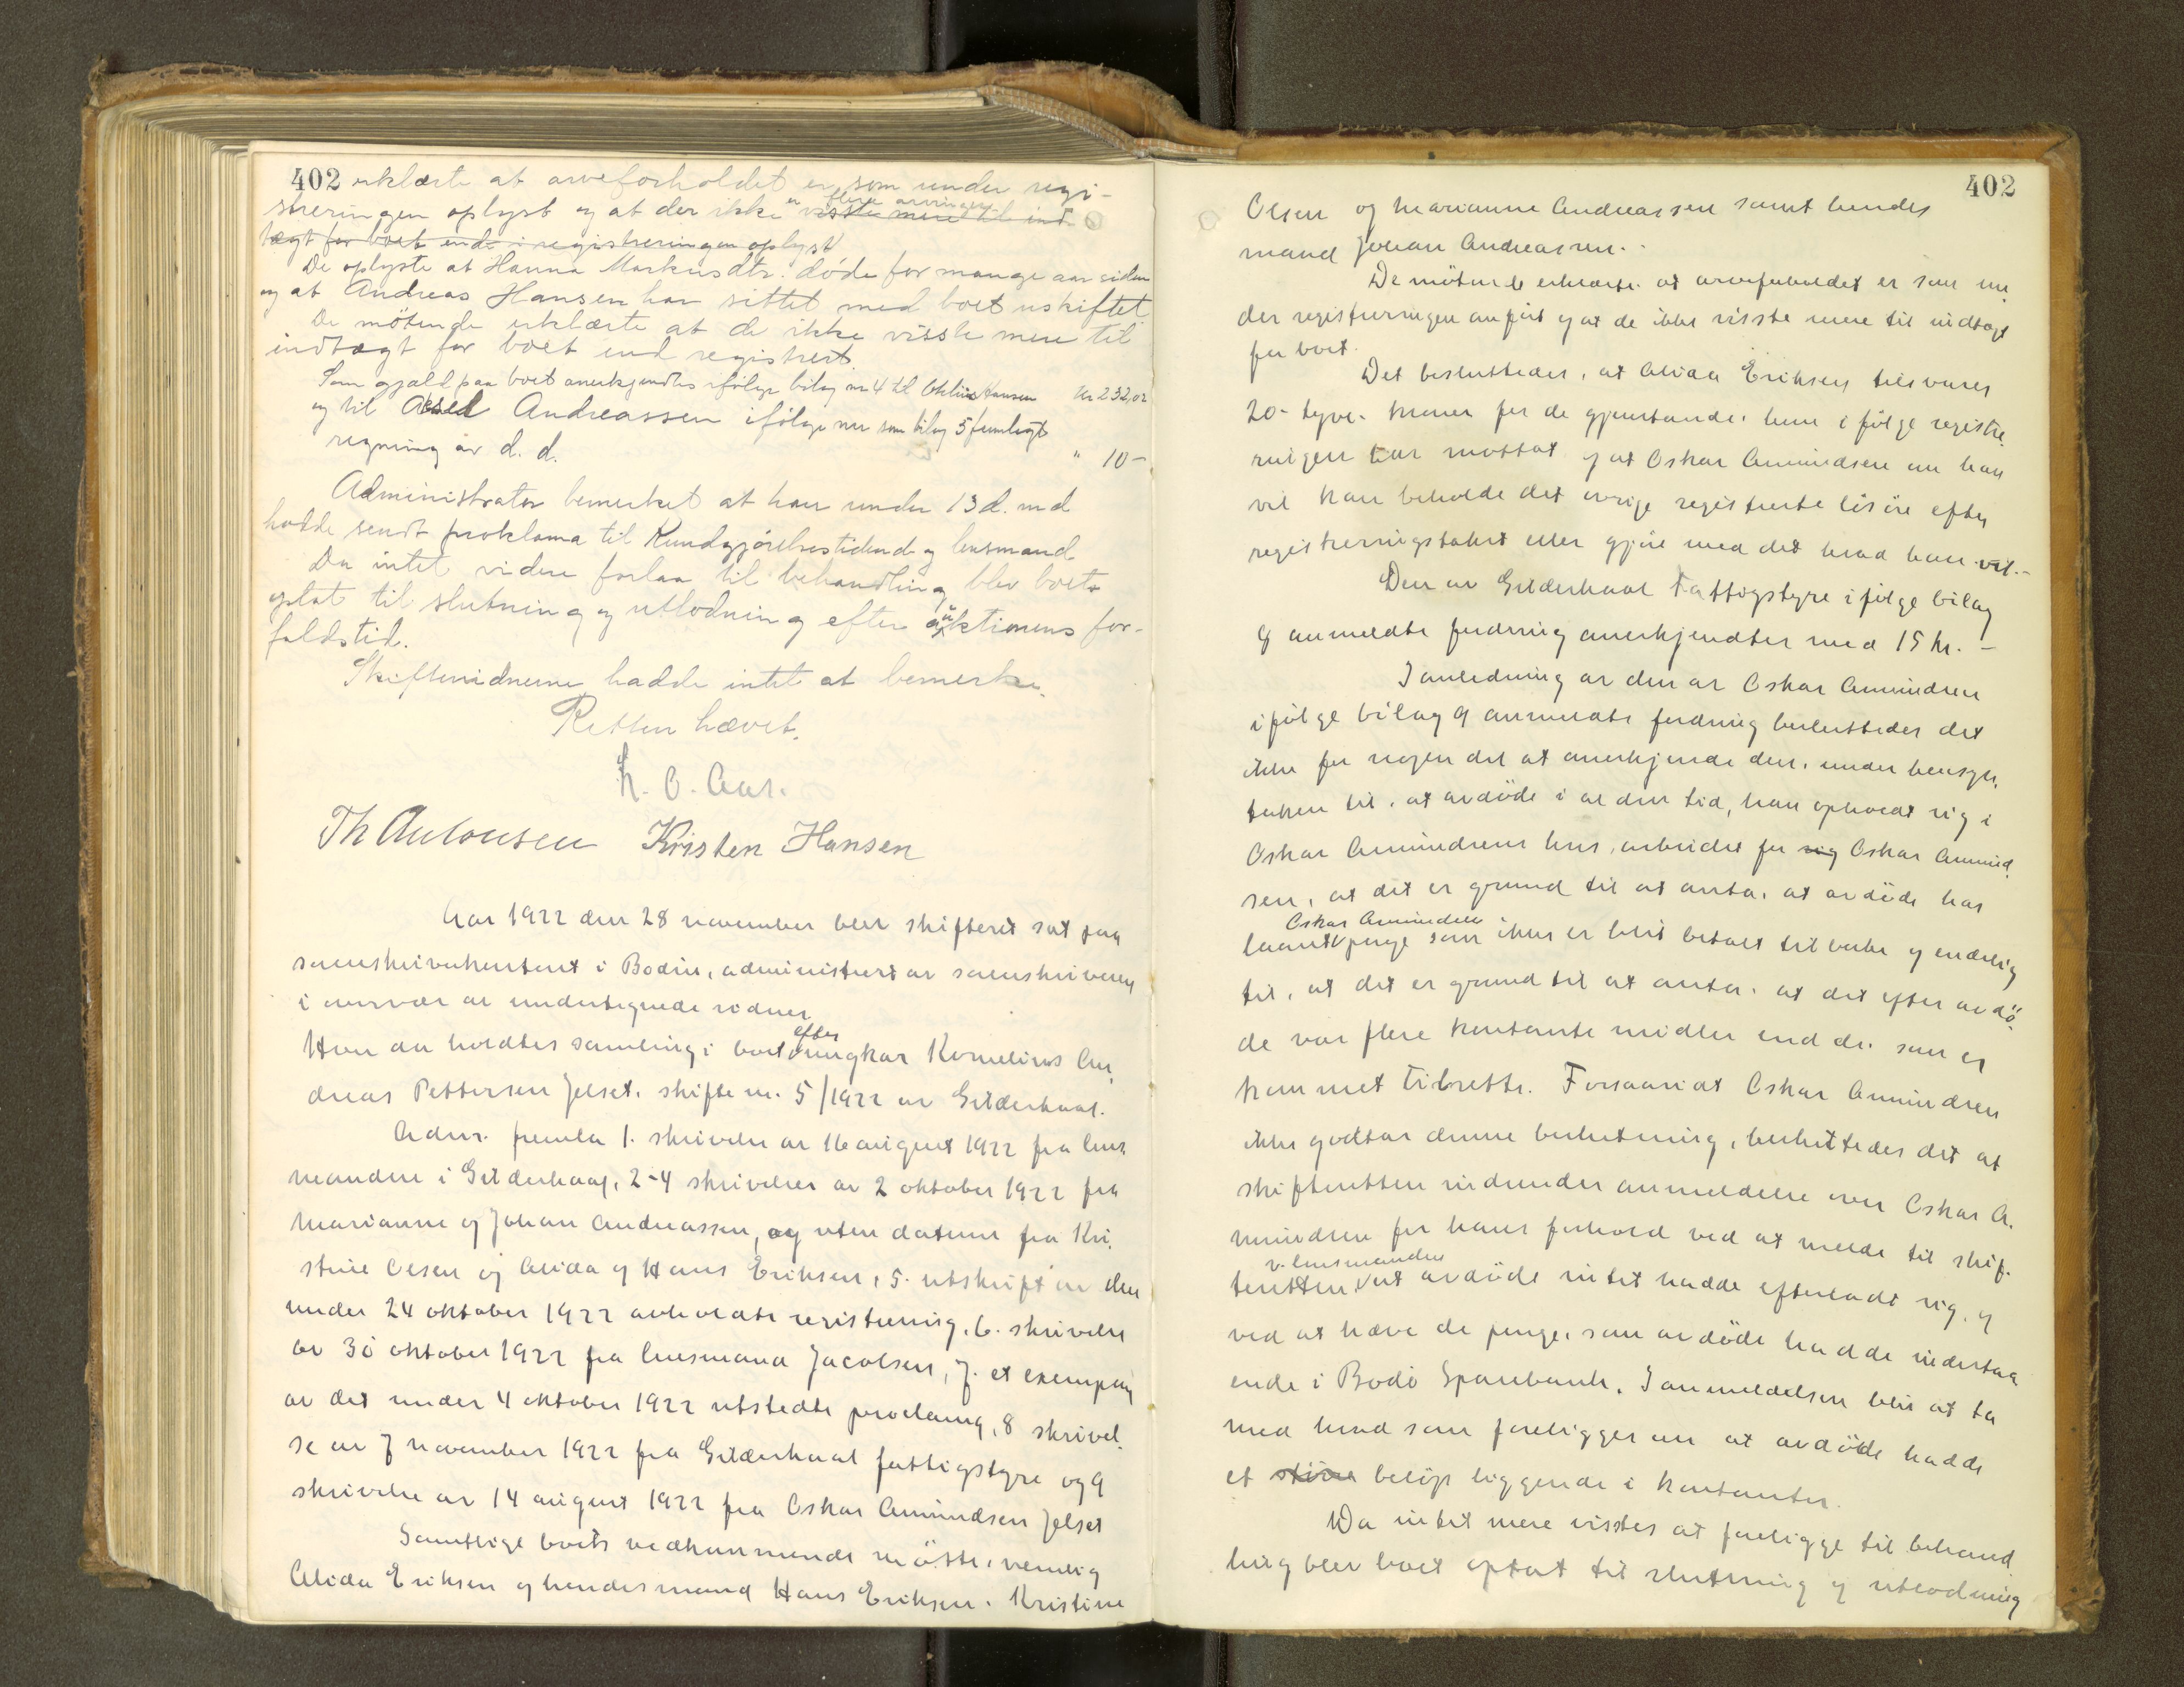 402 erklærte at arveforholdet er som under regi-
streringen oplyst og at der ikke er flere arvinger visste mere til ind
tægt for boet end i registreringen oplyst
De oplyste at Hanna Markusdtr. døde for mange aar siden
og at Andreas Hansen har sittet med boet uskiftet
De møtende erklærte at de ikke visste mere til
indtægt for boet end registrert.
Som gjæld paa boet anerkjendtes ifølge bilag nr 4 til Hansen kr 232,02
og til Andreassen ifølge nu som bilag 5 fremlagt
regning av d. d. " 10-
Administrator bemerket at han under 13 d. md
hadde sendt proklama til Kundgjørelsestidende og lensmand
Da intet videre forlaa til behandling blev boet
optat til slutning og utlodning efter auktionens for-
faldstid.
Skiftevidnerne hadde intet at bemerke.
Retten hævet.
K. O. Aar.
Th Antonsen Kristen Hansen
Aar 1922 den 28 november blev skifteret sat paa
sorenskriverkontoret i Bodin, administrert av sorenskriveren
i overvær av undertegnede vidner
Hvor da holdtes samling i boet efter ungkar Kornelius An-
dreas Pettersen Jelset. skifte nr. 5/1922 av Gildeskaal.
Adm. fremla 1. skrivelse av 16 august 1922 fra lens
manden i Gildeskaal, 2-4 skrivelser av 2 oktober 1922 fra
Marianne og Johan Andreassen, og uten datum fra Kri-
stine Olsen og Alida og Hans Eriksen, 5. utskrift av den
under 24 oktober 1922 avholdte registrering, 6. skrivelse
av 30 oktober 1922 fra lensmand Jacobsen, 7. et exemplar
av det under 4 oktober 1922 utstedte proclama, 8 skrivel-
se av 7 november 1922 fra Gildeskaal fattigstyre og 9
skrivelse av 14 august 1922 fra Oskar Amundsen Jelset
Samtlige boets vedkommende møtte, nemlig
Alida Eriksen og hendes mand Hans Eriksen. Kristine
402
Olsen og Marianne Andreassen samt hendes
mand Johan Andreassen.
De møtende erklærte at arveforholdet er som un-
der registreringen anført og at de ikke visste mere til indtægt
for boet.
Det besluttedes, at Alida Eriksen tilsvarer
20- tyve- kroner for de gjenstande, hun i følge registre-
ringen har mottat og at Oskar Amundsen om han
vil kan beholde det øvrige registrerte løsøre efter
registreringstakst eller gjøre med det hvad han vil.-
Den av Gildeskaal Fattigstyre i følge bilag
8 anmeldte fordring anerkjendtes med 15 kr. -
I anledning av den av Oskar Amundsen
i følge bilag 9 anmeldte fordring besluttedes det
ikke for nogen del at anerkjende den, under hensyn-
taken til, at avdøde i al den tid, han opholdt sig i
Oskar Amundsens hus, arbeidet for sig Oskar Amund-
sen, at det er grund til at anta, at avdøde har
laant Oskar Amundsen penge som ikke er blit betalt tilbake og endelig
til, at det er grund til at anta, at det efter avdø-
de var flere kontante midler end de, som er
kommet tilrette. Forsaavidt Oskar Amundsen
ikke godtar denne beslutning, besluttedes det at
skifteretten indsender anmeldelse over Oskar A-
mundsen for hans forhold ved at melde til skif-
teretten v. lensmanden at avdøde intet hadde efterladt sig, og
ved at hæve de penge, som avdøde hadde indestaa
ende i Bodø Sparebank. I anmeldelsen blir at ta
med hvad som foreligger om at avdøde hadde
et større beløp liggende i kontanter.
Da intet mere visstes at foreligge til behand
ling blev boet optat til slutning og utlodning